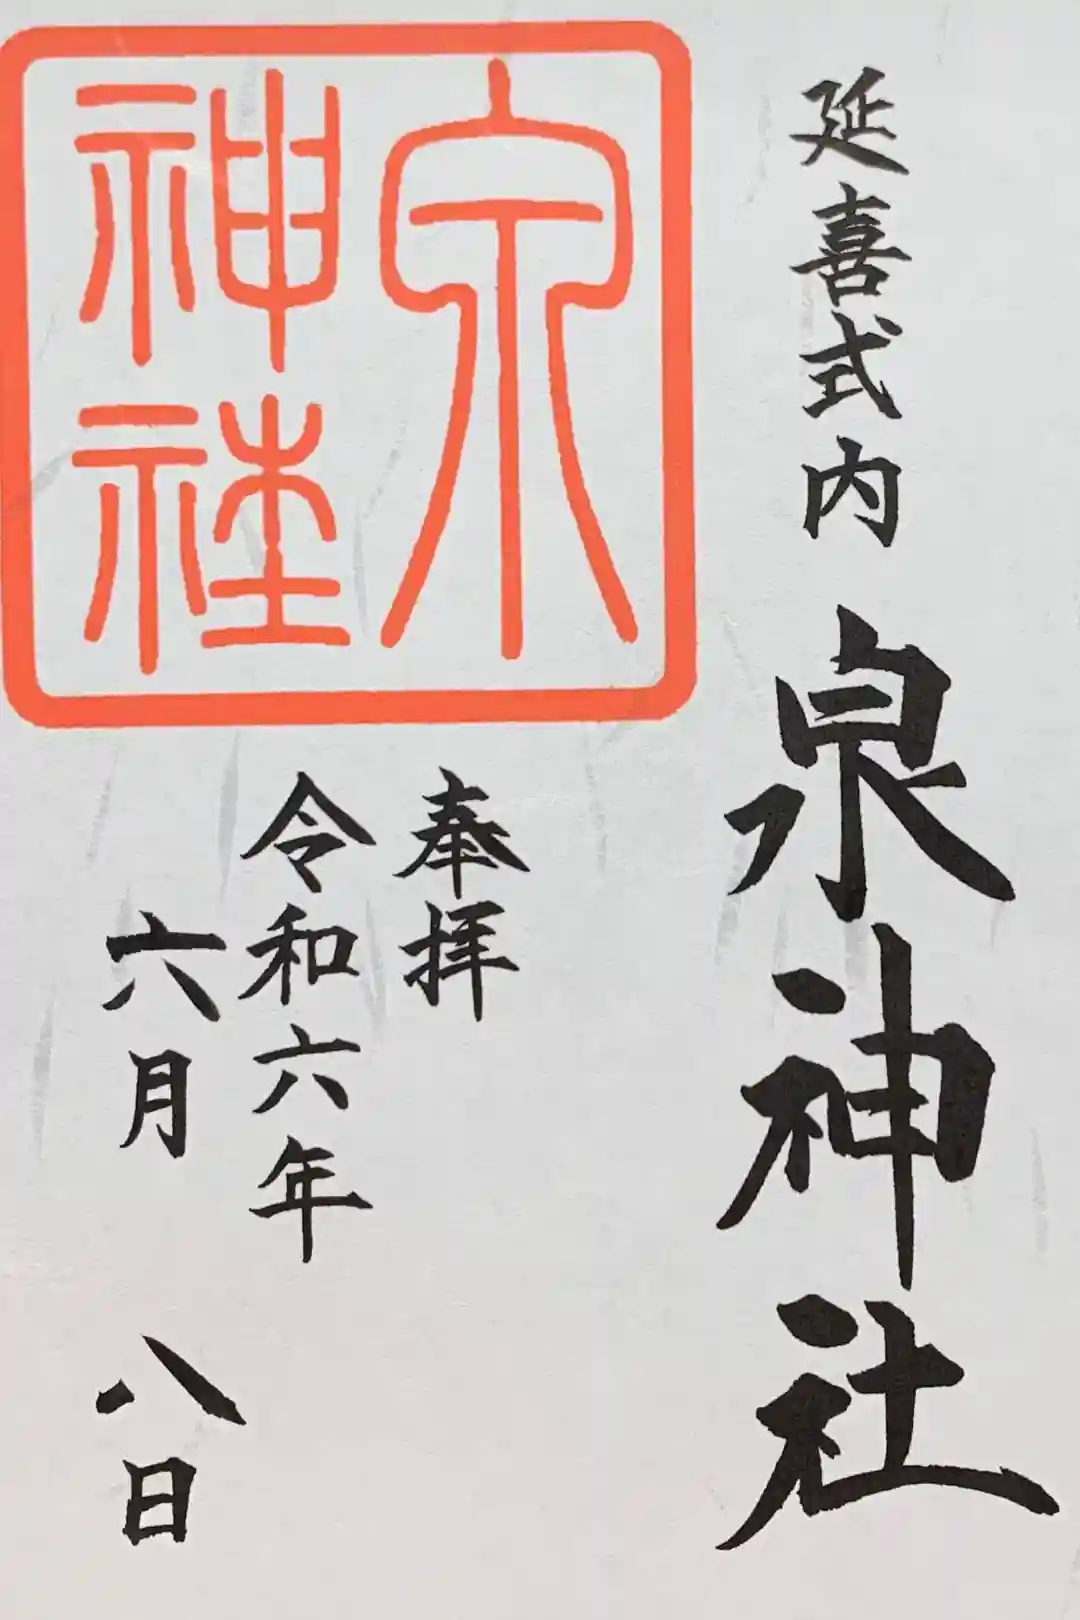 延喜式内 泉神社
泉
神社
奉拝
令和六年
六月 八日